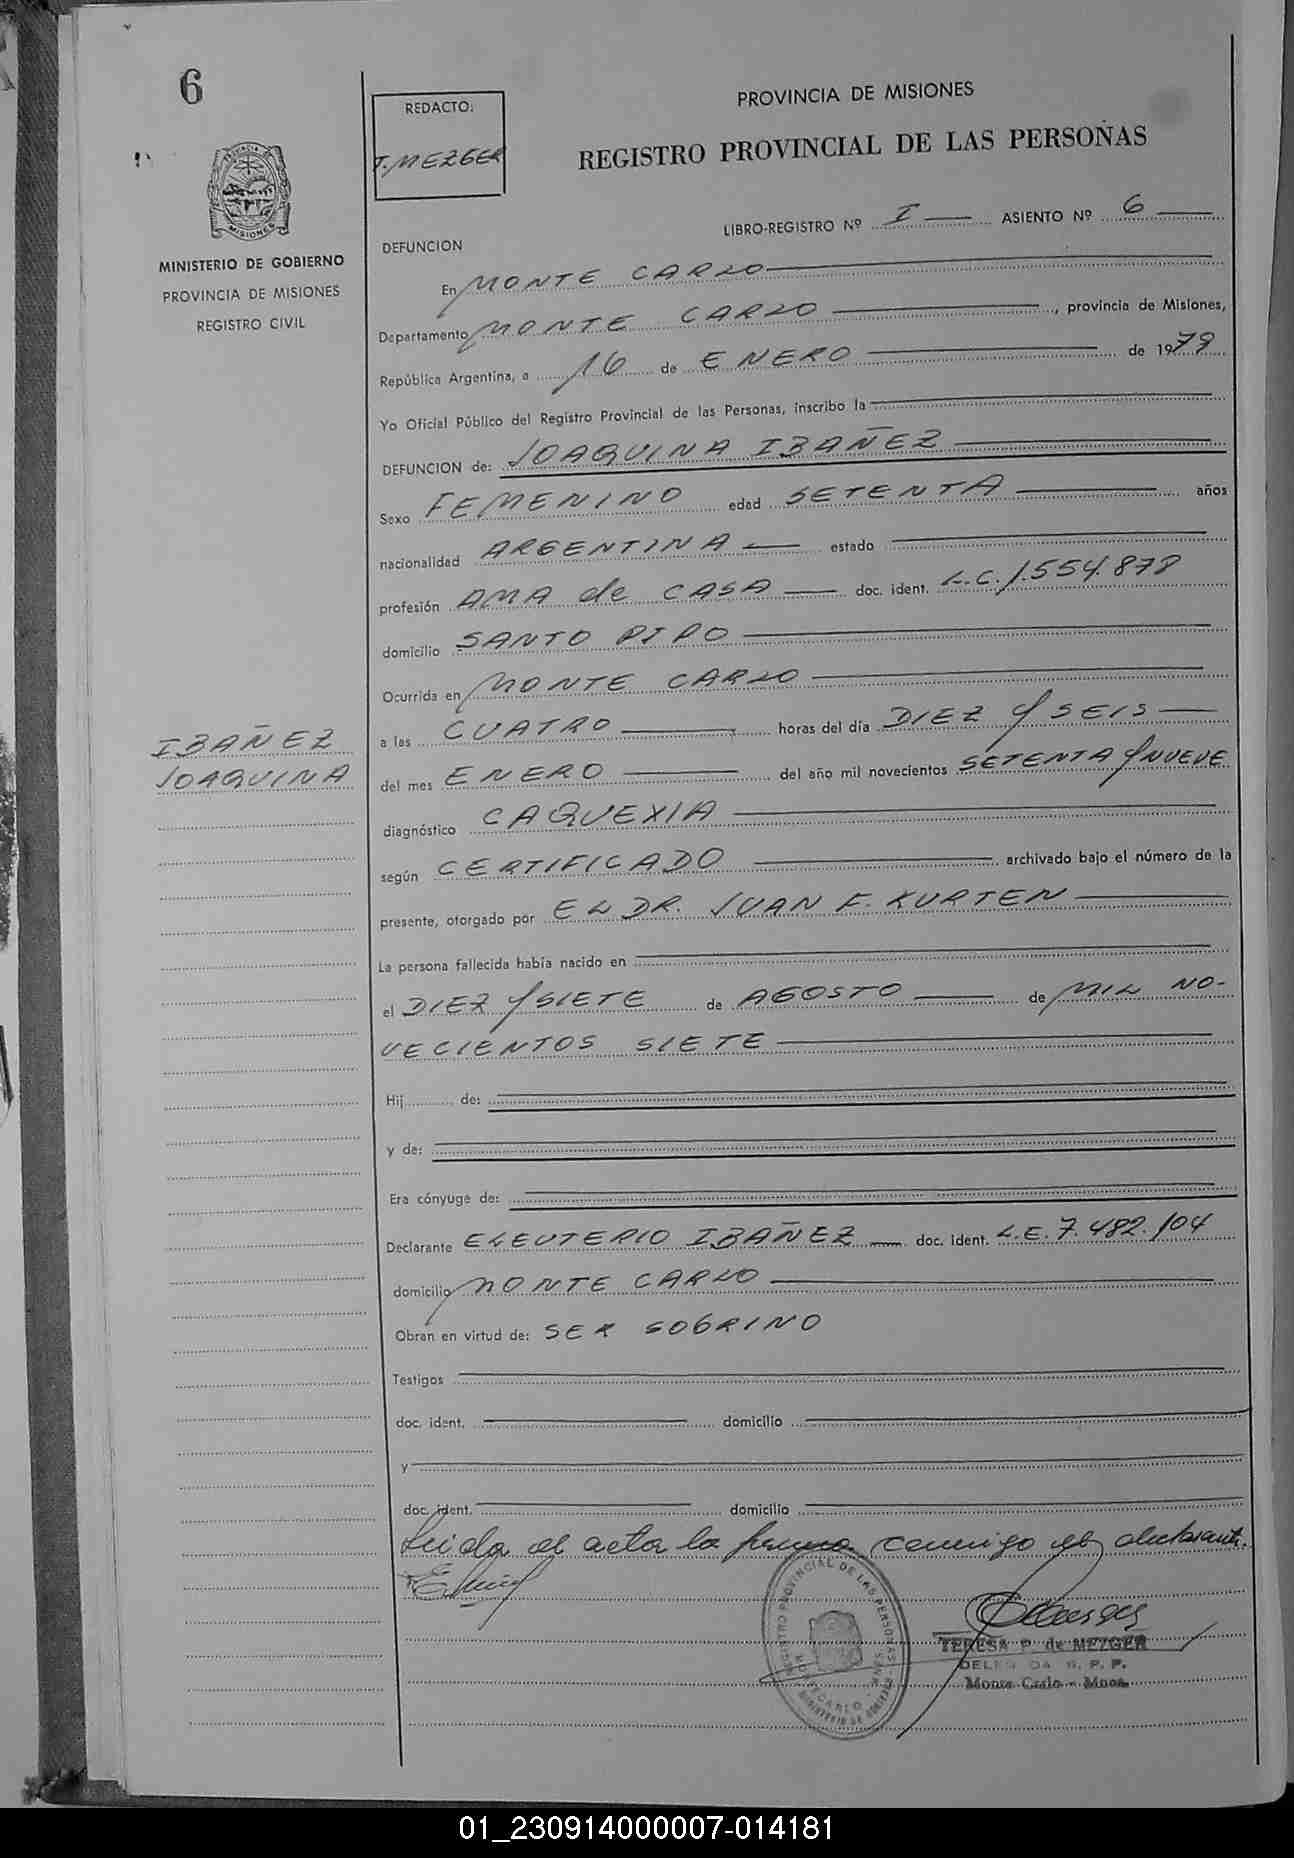 6
REDACTO:
T. MEZGER
PROVINCIA DE MISIONES
REGISTRO PROVINCIAL DE LAS PERSONAS
PROVINCIA DE
MISIONES
MINISTERIO DE GOBIERNO
PROVINCIA DE MISIONES
REGISTRO CIVIL
LIBRO-REGISTRO Nº I ASIENTO Nº 6
DEFUNCION
En MONTE CARLO
Departamento MONTE CARLO, provincia de Misiones,
República Argentina, a 16 de ENERO de 1979
Yo Oficial Público del Registro Provincial de las Personas, inscribo la
DEFUNCION de: JOAQUINA IBAÑEZ
Sexo FEMENINO edad SETENTA años
nacionalidad ARGENTINA estado
profesión AMA de CASA doc. ident. L.C. 1.554.878
domicilio SANTO PIPO
Ocurrida en MONTE CARLO
a las CUATRO horas del día DIEZ Y SEIS
del mes ENERO del año mil novecientos SETENTA Y NUEVE
IBAÑEZ
JOAQUINA
diagnóstico CAQUEXIA
según CERTIFICADO archivado bajo el número de la
presente, otorgado por EL DR. JUAN F. KURTEN
La persona fallecida había nacido en
el DIEZ Y SIETE de AGOSTO de MIL NO-
VECIENTOS SIETE
Hij de:
y de:
Era cónyuge de:
Declarante ELEUTERIO IBAÑEZ doc. ident. L.E. 7.482.104
domicilio MONTE CARLO
Obran en virtud de: SER SOBRINO
Testigos
doc. ident. domicilio
y
doc. ident. domicilio
Leida el acta la firma conmigo el declarante.
REGISTRO PROVINCIAL DE LAS PERSONAS
TERESA P. de MEZGER
DELEGADA R. P. P.
Monte Carlo - Mnes.
01_230914000007-014181